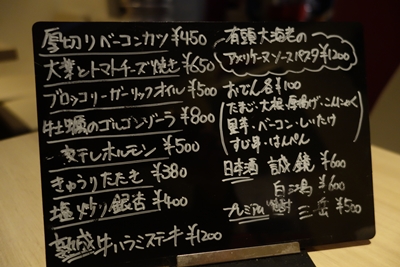 厚切りベーコンカツ ¥450
大葉とトマトチーズ焼き ¥650
ブロッコリーガーリックオイル ¥500
牡蠣のゴルゴンゾーラ ¥800
ホルモン ¥500
きゅうりたたき ¥380
塩炒り銀杏 ¥400
熟成牛ハラミステーキ ¥1200
有頭大海老の
アメリケーヌソースパスタ ¥1200
おでん各¥100
たまご・大根・厚揚げ・こんにゃく
里芋・ベーコン・しいたけ
すじ串・はんぺん
日本酒 誠鏡 ¥600
¥600
プレミアム 三岳 ¥500